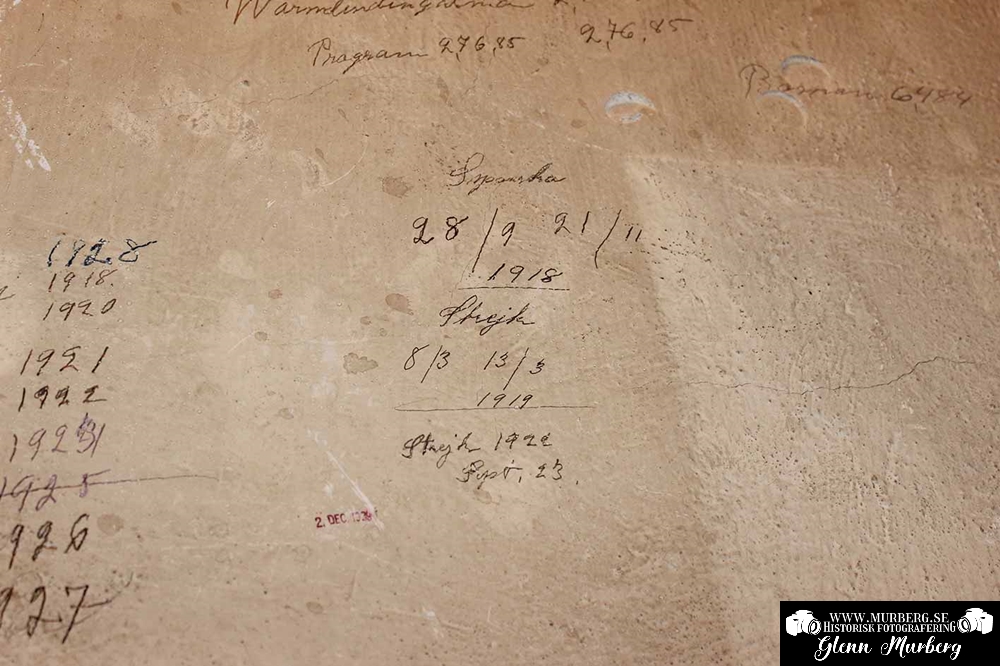 Program 276,85 276,85
6484
Spanska
28/9 21/11
1918
Strejk
8/3 13/3
1919
Strejk 1922
Sept, 23.
1928
1918.
1920
1921
1922
1923
1925
926
927
2. DEC. 1939
WWW.MURBERG.SE
HISTORISK FOTOGRAFERING
Glenn Murberg